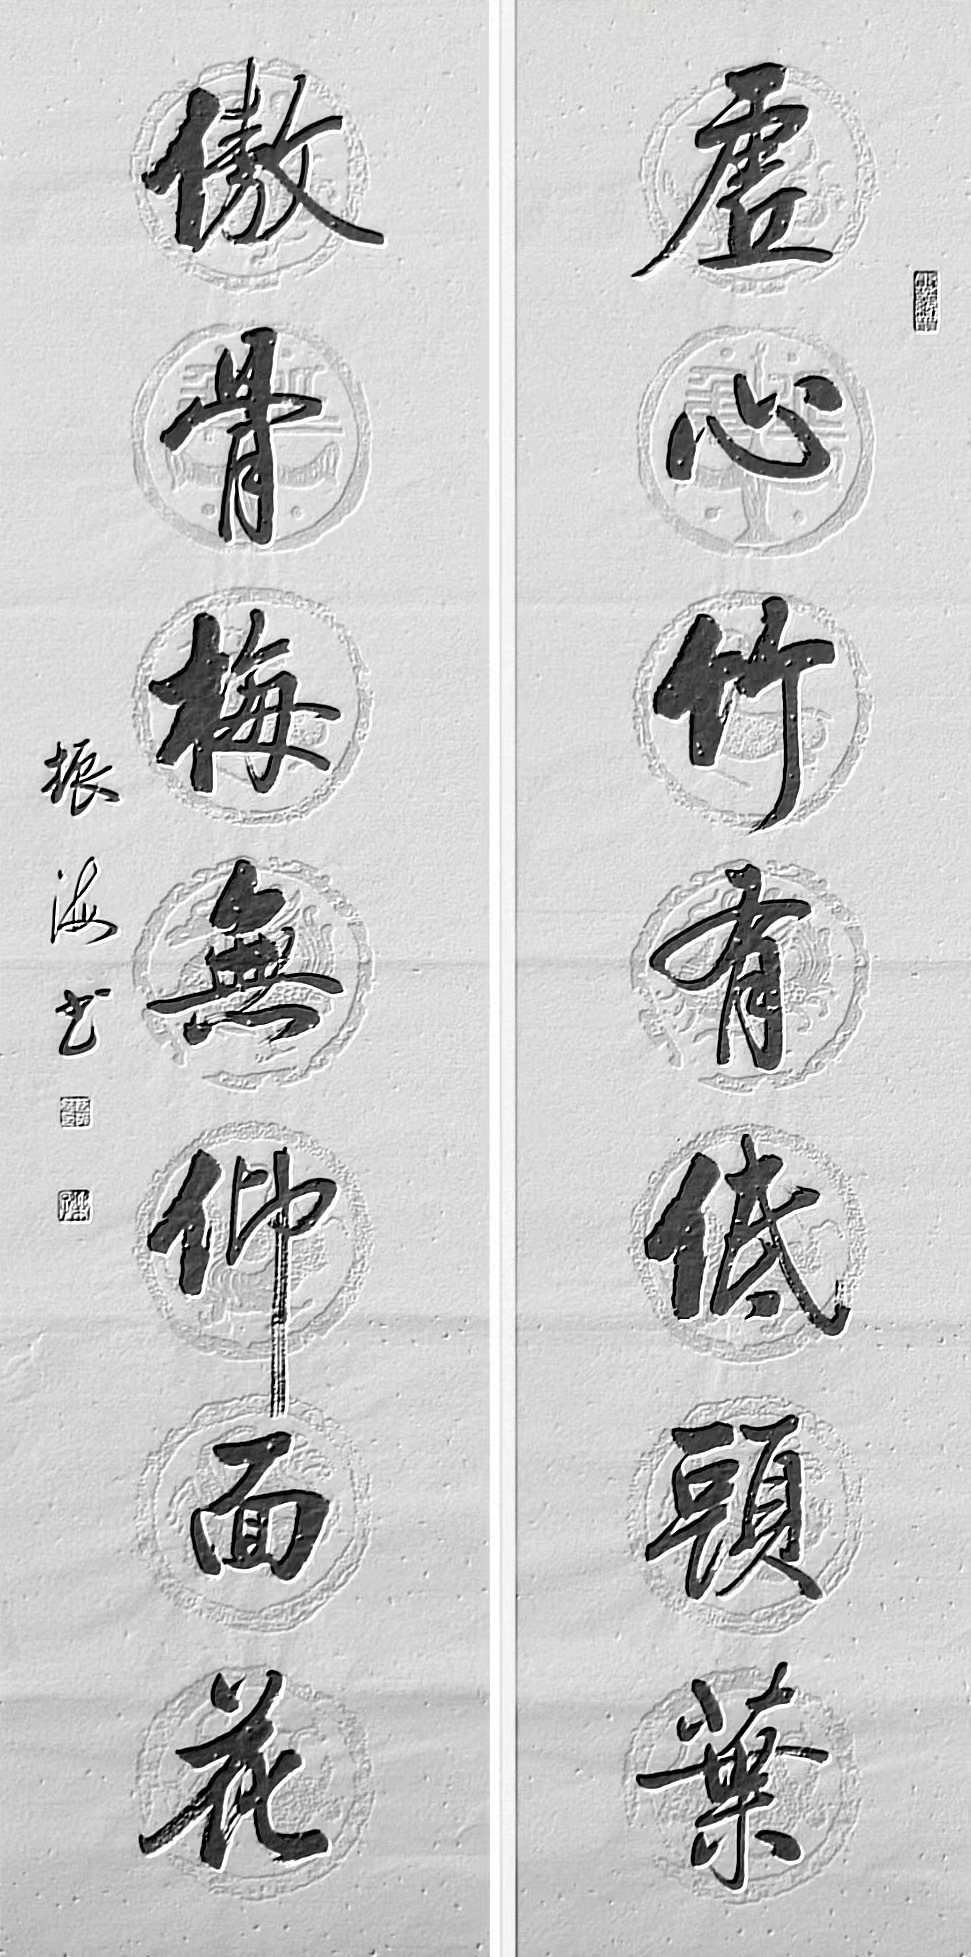 虛心竹有低頭葉
傲骨梅無仰面花
振海书